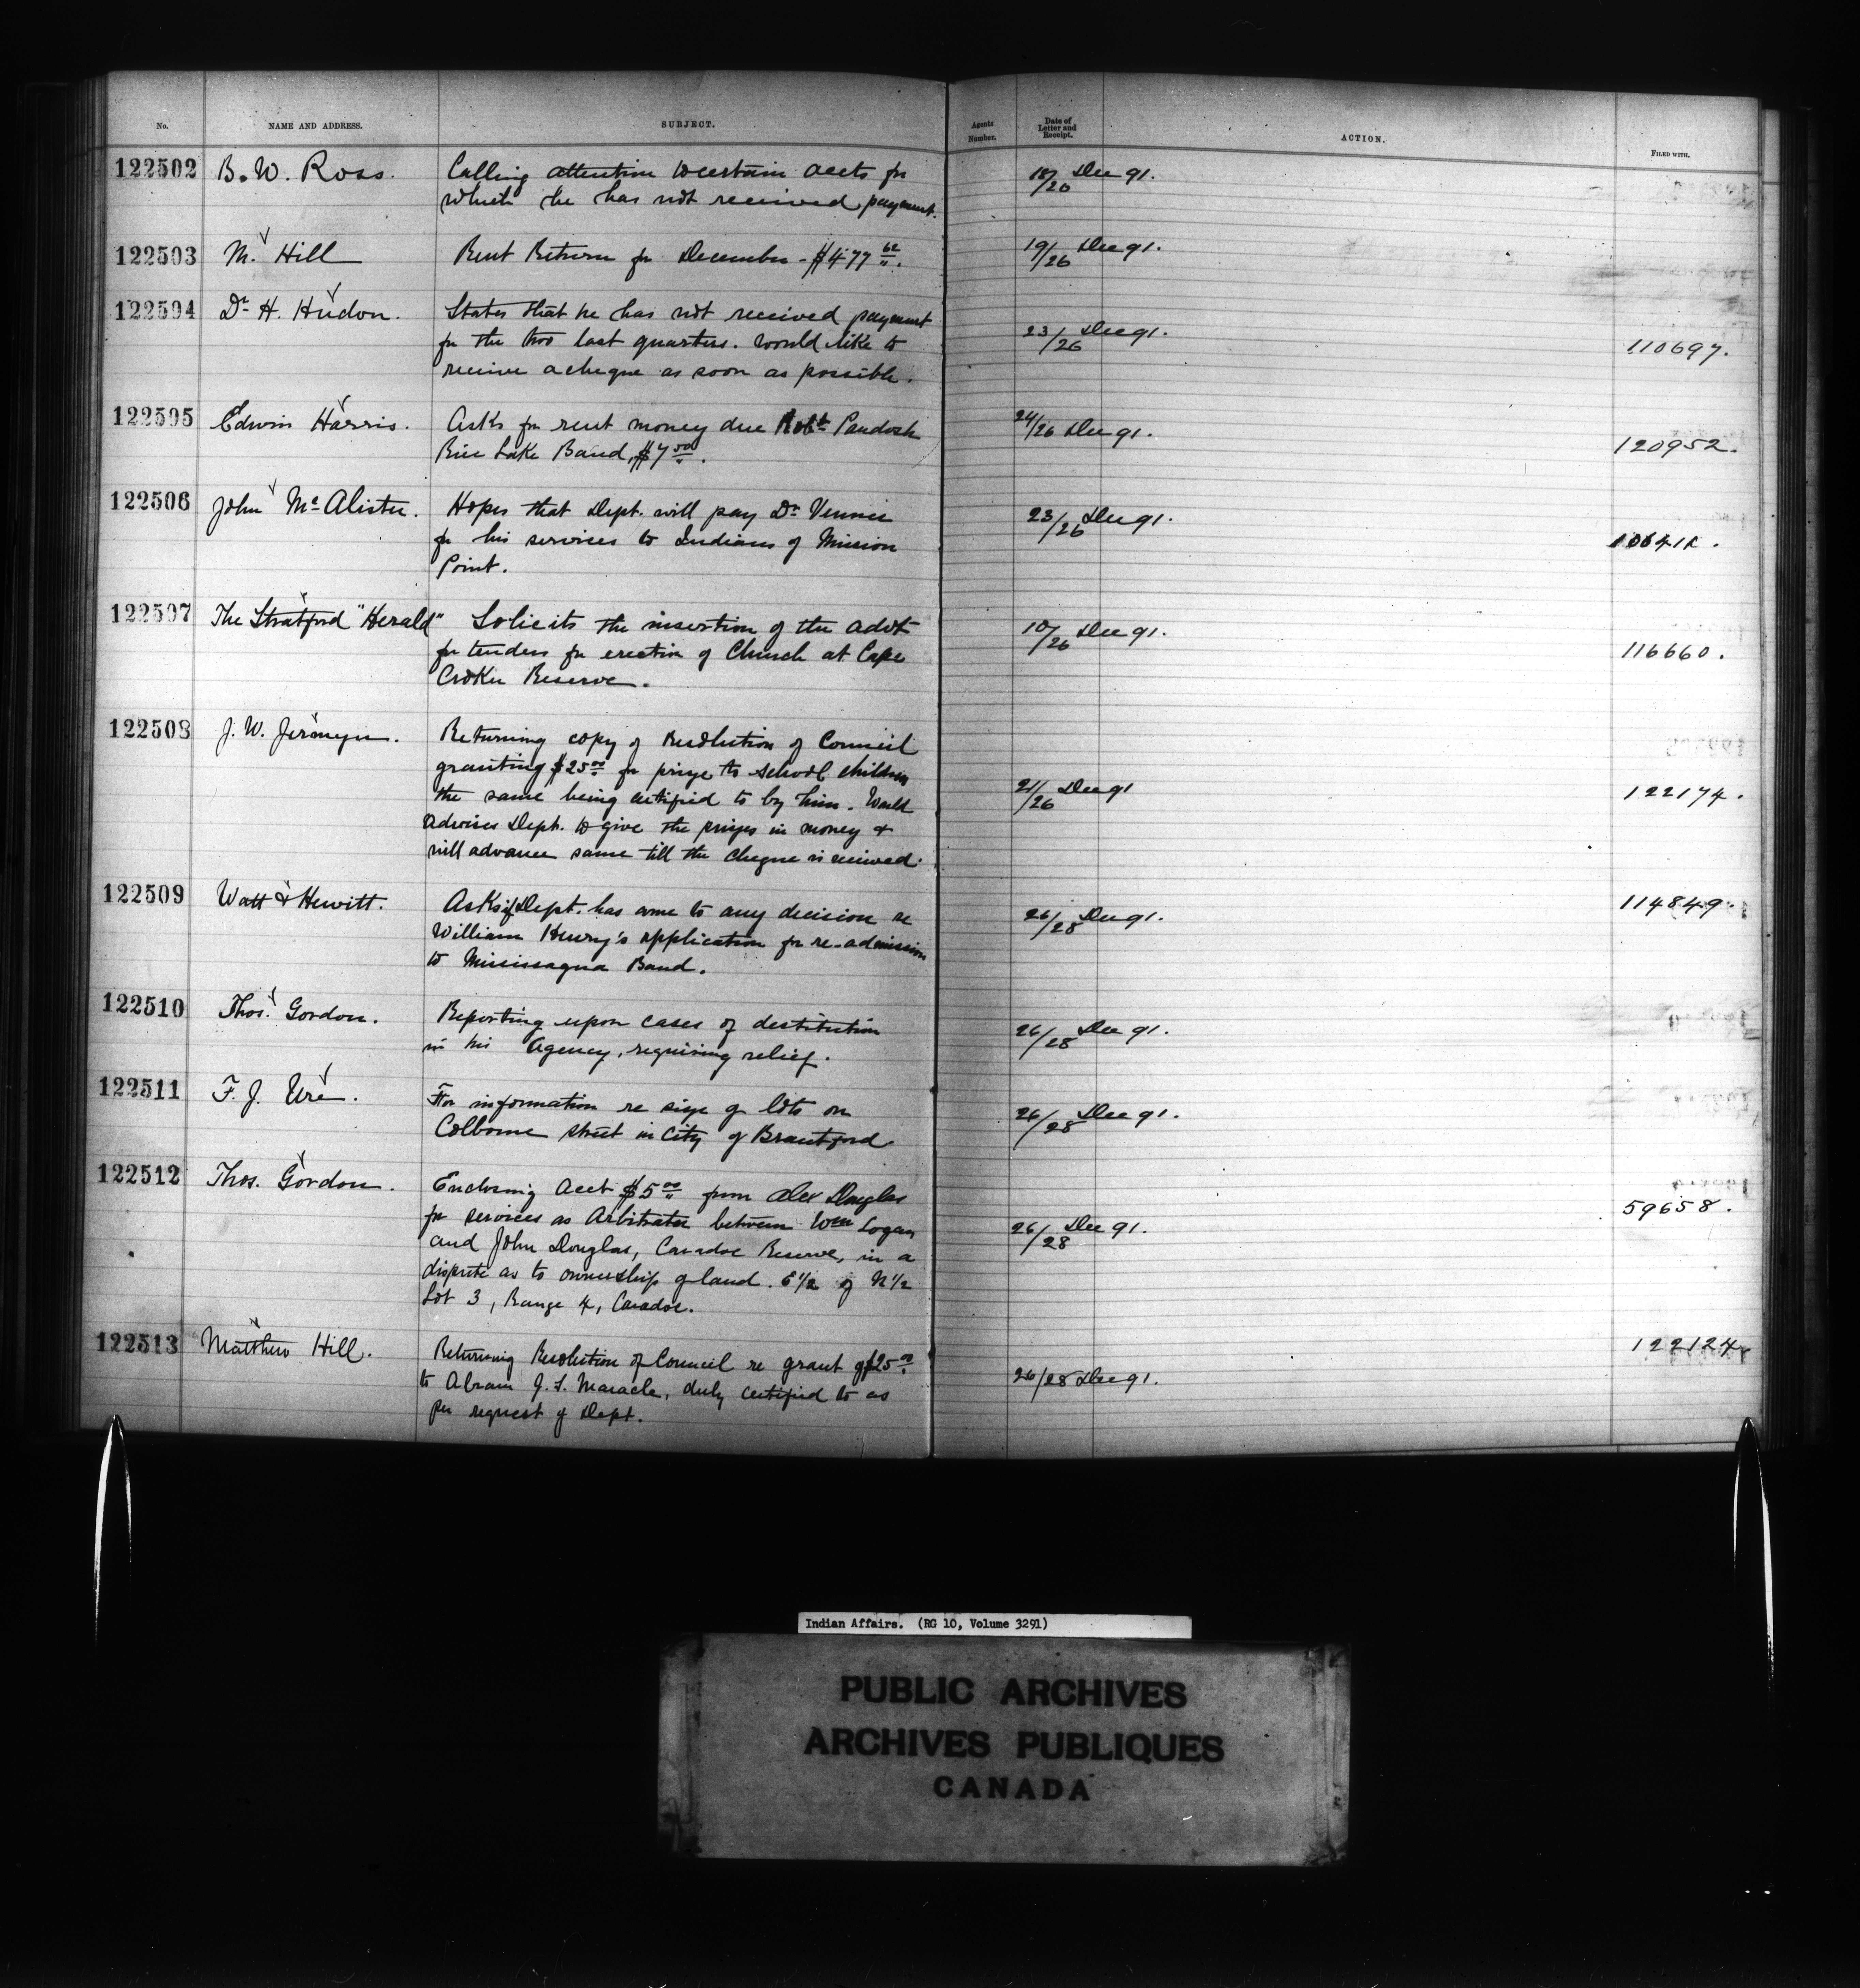 No. NAME AND ADDRESS. SUBJECT. Agents Number. Date of Letter and Receipt. ACTION. FILED WITH.
122502 B. W. Ross. Calling attention to certain accts for 18/26 Dec 91.
which he has not received payment.
122503 M. Hill Rent Return for December - $477 62. 19/26 Dec 91.
122504 Dr H. Hudon. States that he has not received payment 23/26 Dec 91. 110697.
for the two last quarters. Would like to
receive a cheque as soon as possible.
122505 Edwin Harris. Asks for rent money due Robt Paudash 24/26 Dec 91. 120952.
Rice Lake Band, $7 50.
122506 John Mc Alister. Hopes that Dept. will pay Dr Venner 23/26 Dec 91.
for his services to Indians of Mission
Point.
122507 The Stratford "Herald" Solicits the insertion of the advt 10/26 Dec 91. 116660.
for tenders for erection of Church at Cape
Croker Reserve.
122508 J. W. Jermyn. Returning copy of Resolution of Council
granting $25 00 for prizes to school children
the same being certified to by him. Would 21/26 Dec 91 122174.
advises Dept. to give the prizes in money &
will advance same till the cheque is received.
122509 Watt & Hewitt. Asks if Dept. has come to any decision re 26/28 Dec 91. 114849.
William Henry's application for re-admission
to Mississagua Band.
122510 Thos. Gordon. Reporting upon cases of destitution 26/28 Dec 91.
in his Agency, requiring relief.
122511 F. J. Ure. For information re size of lots on 26/28 Dec 91.
Colborne street in City of Brantford
122512 Thos. Gordon. Enclosing Acct $5 00 from Alex Douglas 59658.
for services as Arbitrator between Wm Logan 26/28 Dec 91.
and John Douglas, Caradoc Reserve, in a
dispute as to ownership of land. E 1/2 of N 1/2
Lot 3, Range 4, Caradoc.
122513 Matthew Hill. Returning Resolution of Council re grant of $25 00 26/28 Dec 91. 122124.
to Abram J. S. Maracle, duly certified to as
per request of Dept.
Indian Affairs. (RG 10, Volume 3291)
PUBLIC ARCHIVES
ARCHIVES PUBLIQUES
CANADA